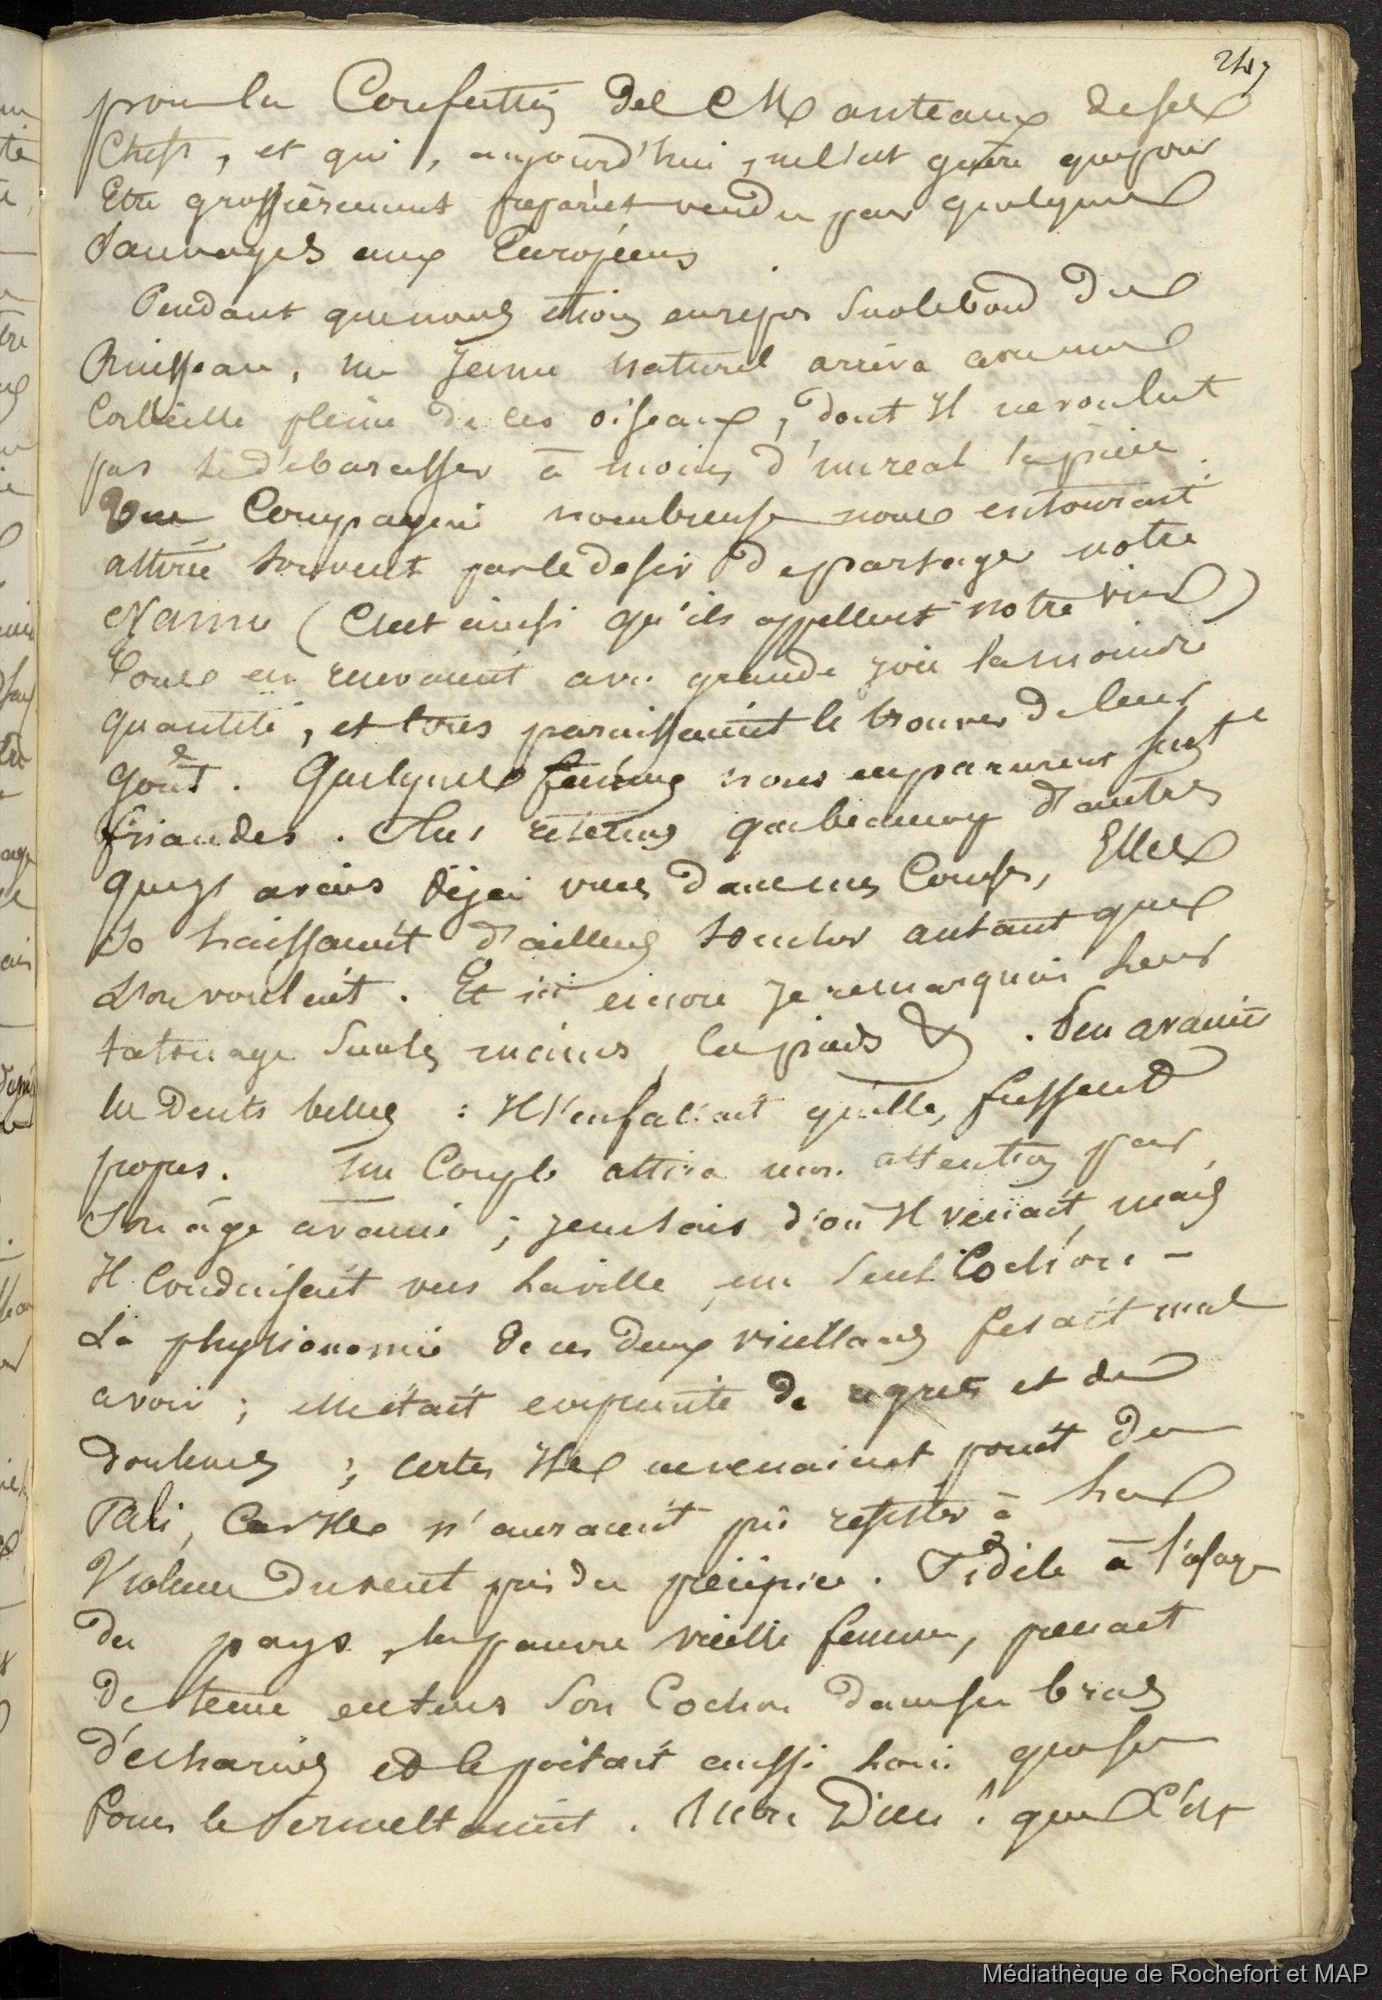 247
pour la Confection des Manteaux de ses
Chefs, et qui, aujourd'hui, ne l'est guère que pour
Etre grossièrement préparé et vendu par quelques
Sauvages aux Européens
Pendant que nous étions en repos sur le bord du
Ruisseau, un Jeune naturel arriva avec une
Corbeille pleine de ces oiseaux, dont Il ne voulut
pas se débarasser à moins d'un real la pièce.
Une Compagnie nombreuse nous entourait
attirée souvent par le desir de partager notre
Namu (C'est ainsi qu'ils appellent notre rum)
Tous en recevaient avec grande joie la moindre
quantité, et tous paraissaient le trouver de leur
goût. Quelques femmes nous en parurent fort
friandes. Plus retenus que beaucoup d'autres
que j'avais déjà vues dans mes Courses, Elles
se laissaient d'ailleurs toucher autant que
l'on voulait. Et ici encore Je remarquai leur
tatouage sur les mains, les pieds &. Peu avaient
les Dents belles : Il s'en fallait qu'elles fussent
propres. Un Couple attira mon attention par
Son âge avancé ; je ne sais d'où Il venait, mais
Il Conduisait vers la ville, un seul Cochon -
La physionomie de ces deux vieillards fesait mal
a voir ; elle était empreinte de regrets et de
douleurs ; certes Ils ne venaient point du
Pali, Car Ils n'auraient pû resister à la
Violence du vent près du précipice. Fidèle à l'usage
du pays, la pauvre vieille femme, prenait
de tems en tems Son Cochon dans ses bras
décharnés et le portait aussi loin que ses
forces le Permettaient. Mon Dieu ! que C'est
Médiathèque de Rochefort et MAP